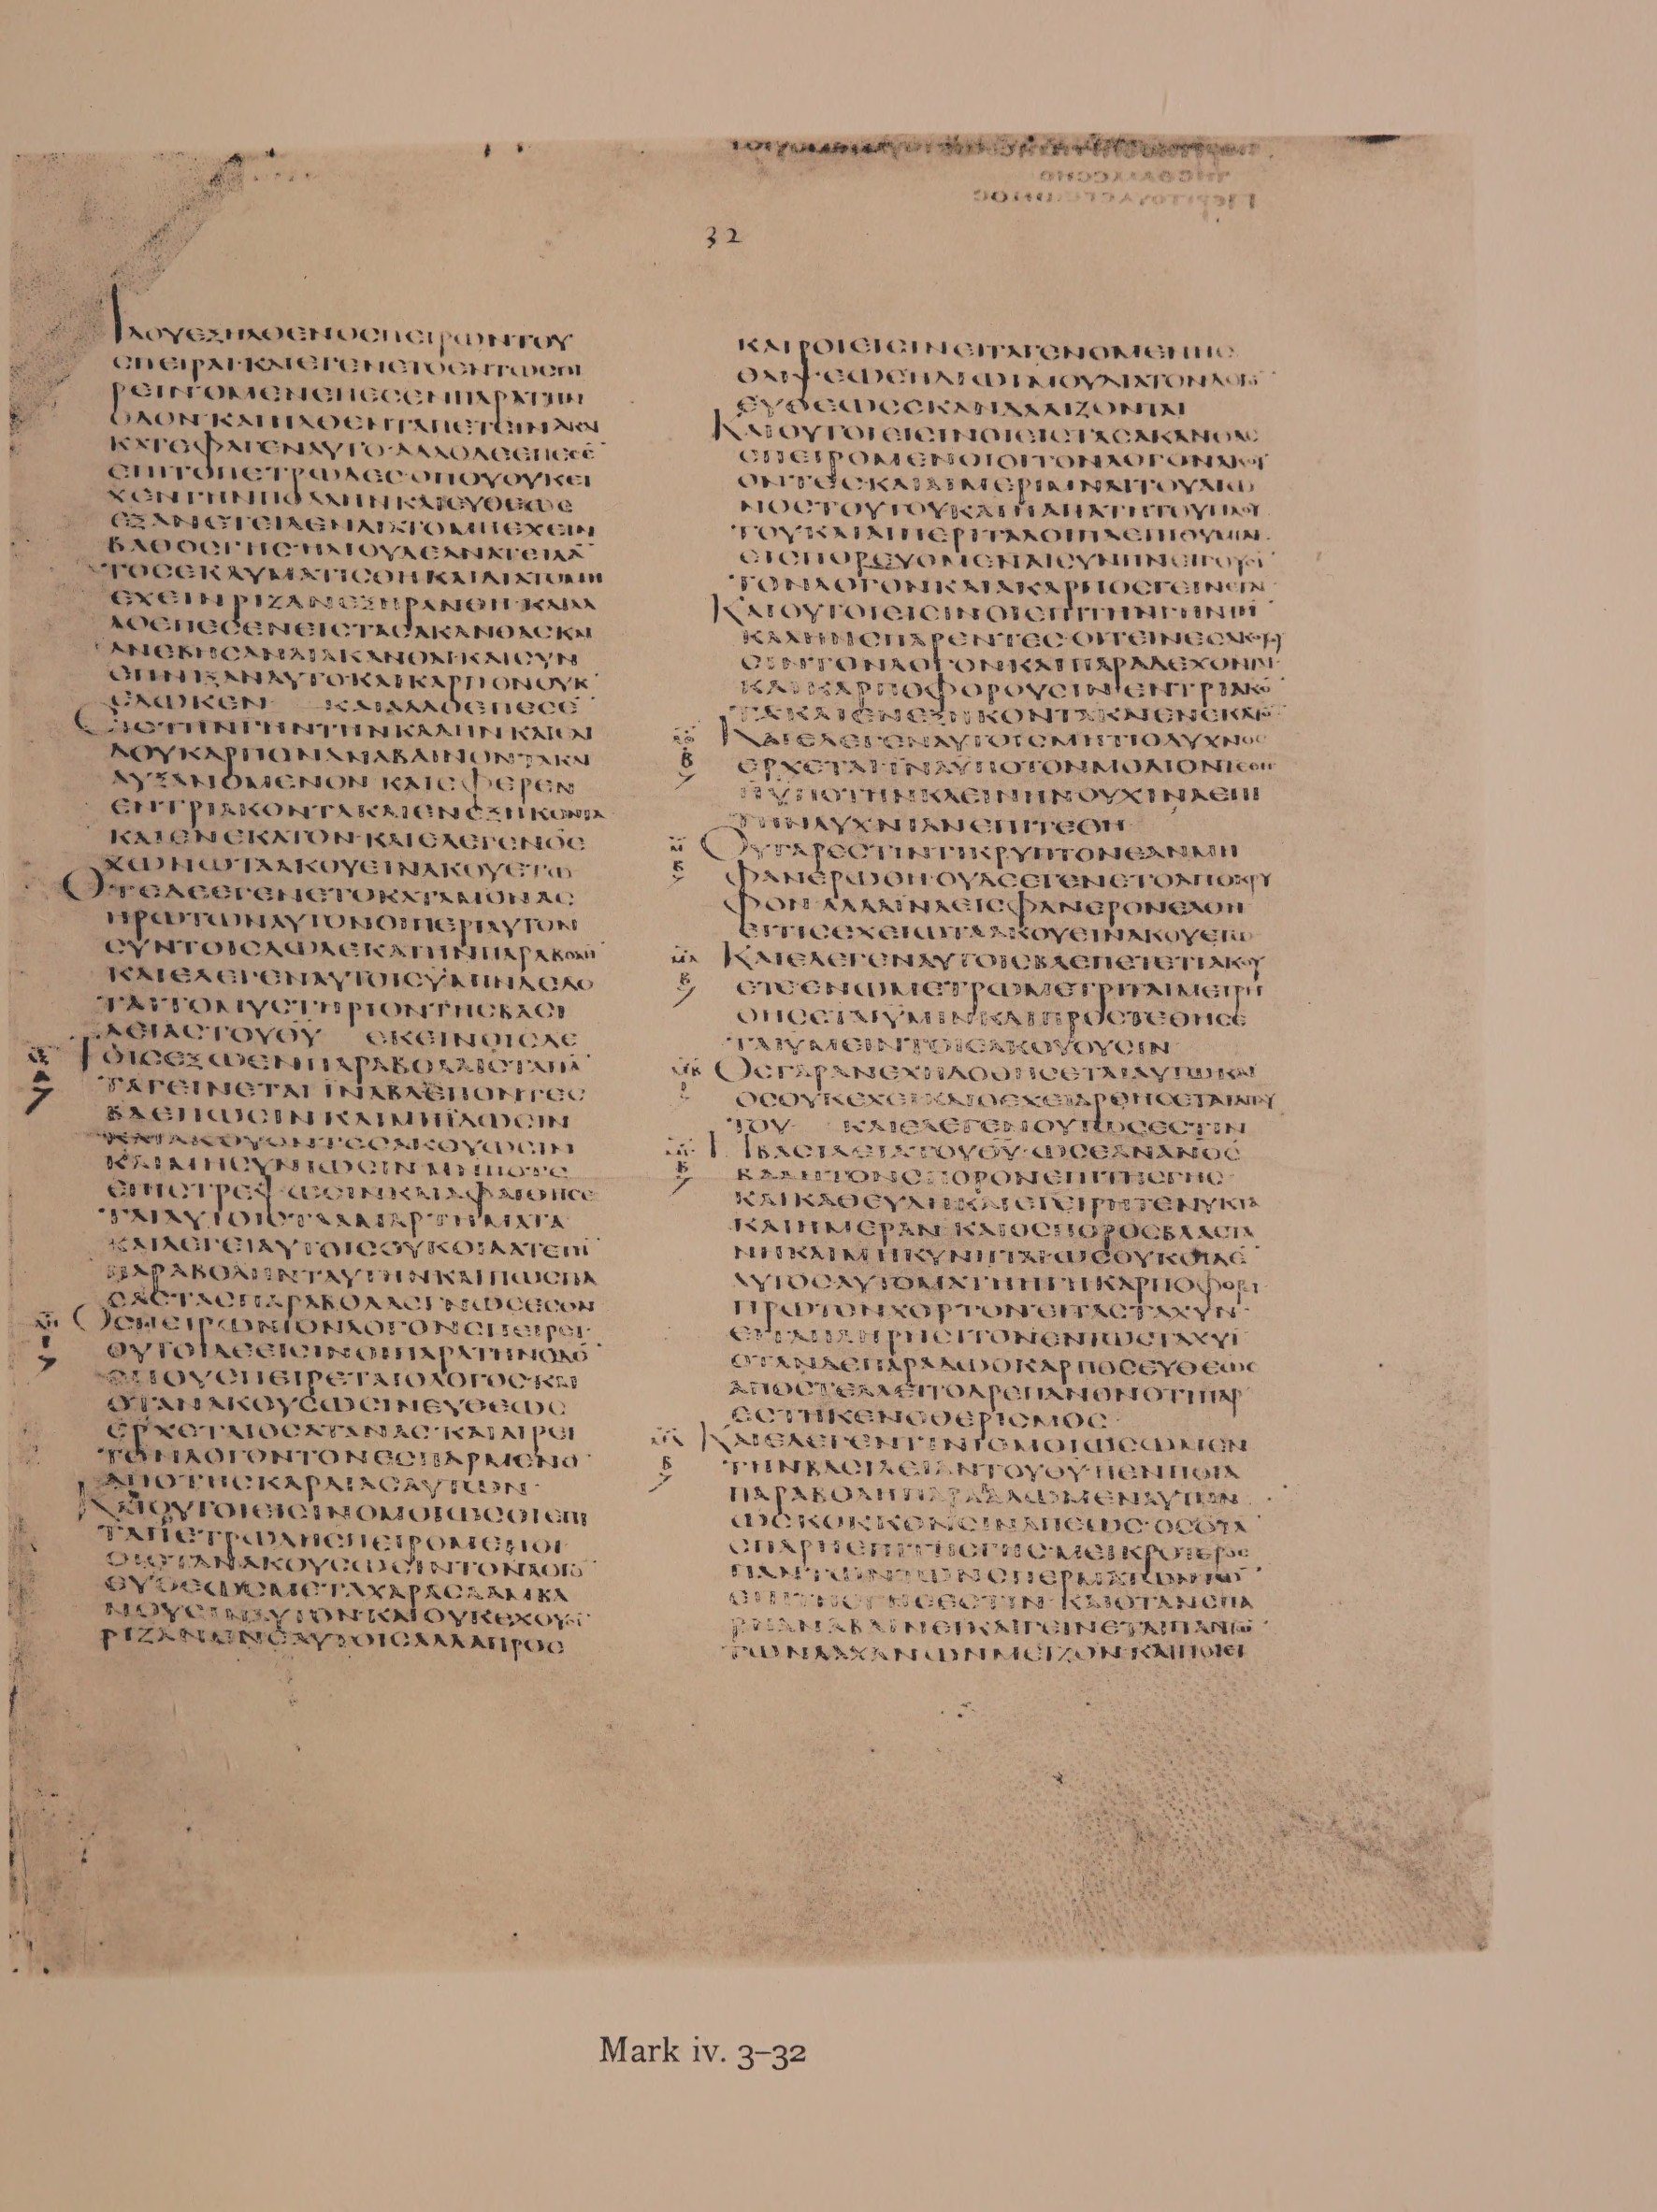 ΙΔΟΥΕΞΗΛΘΕΝΟϹΠΕΙΡΩΝΤΟΥ
ϹΠΕΙΡΑΙ·ΚΑΙΕΓΕΝΕΤΟΕΝΤΩϹΠΙ
ΡΕΙΝΤΟΜΕΝΕΠΕϹΕΝΠΑΡΑΤΗΝ
ΟΔΟΝ·ΚΑΙΗΛΘΕΝΤΑΠΕΤΕΙΝΑΚΑΙ
ΚΑΤΕΦΑΓΕΝΑΥΤΟ·ΑΛΛΟΔΕΕΠΕϹΕ̅
ΕΠΙΤΟΠΕΤΡΩΔΕϹΟΠΟΥΟΥΚΕΙ
ΧΕΝΓΗΝΠΟΛΛΗΝΚΑΙΕΥΘΕΩϹ
ΕΞΑΝΕΤΕΙΛΕΝΔΙΑΤΟΜΗΕΧΕΙΝ
ΒΑΘΟϹΓΗϹ·ΗΛΙΟΥΔΕΑΝΑΤΕΙΛΑ̅
ΤΟϹΕΚΑΥΜΑΤΙϹΘΗΚΑΙΔΙΑΤΟΜΗ
ΕΧΕΙΝΡΙΖΑΝΕΞΗΡΑΝΘΗ·ΚΑΙΑΛ
ΛΟΕΠΕϹΕΝΕΙϹΤΑϹΑΚΑΝΘΑϹΚΑΙ
ΑΝΕΒΗϹΑΝΑΙΑΚΑΝΘΑΙ·ΚΑΙϹΥΝ
ΕΠΝΙΞΑΝΑΥΤΟΚΑΙΚΑΡΠΟΝΟΥΚ
ΕΔΩΚΕΝ ΚΑΙΑΛΛΟΕΠΕϹΕ
ΕΙϹΤΗΝΓΗΝΤΗΝΚΑΛΗΝΚΑΙΕΔΙ
ΔΟΥΚΑΡΠΟΝΑΝΑΒΑΙΝΟΝΤΑΚΑΙ
ΑΥΞΑΝΟΜΕΝΟΝ·ΚΑΙΕΦΕΡΕΝ
ΕΝΤΡΙΑΚΟΝΤΑΚΑΙΕΝΕΞΗΚΟΝΤΑ
ΚΑΙΕΝΕΚΑΤΟΝ·ΚΑΙΕΛΕΓΕΝΟΕ
ΧΩΝΩΤΑΑΚΟΥΕΙΝΑΚΟΥΕΤΩ
ΟΤΕΔΕΕΓΕΝΕΤΟΚΑΤΑΜΟΝΑϹ
ΗΡΩΤΩΝΑΥΤΟΝΟΙΠΕΡΙΑΥΤΟΝ
ϹΥΝΤΟΙϹΔΩΔΕΚΑΤΗΝΠΑΡΑΒΟΛΗ̅
ΚΑΙΕΛΕΓΕΝΑΥΤΟΙϹΫΜΙΝΔΕΔΟ
ΤΑΙΤΟΜΥϹΤΗΡΙΟΝΤΗϹΒΑϹΙ
ΛΕΙΑϹΤΟΥΘ̅Υ̅ ΕΚΕΙΝΟΙϹΔΕ
ΤΟΙϹΕΞΩΕΝΠΑΡΑΒΟΛΑΙϹΤΑΠΑ̅
ΤΑΓΕΙΝΕΤΑΙΪΝΑΒΛΕΠΟΝΤΕϹ
ΒΛΕΠΩϹΙΝΚΑΙΜΗΪΔΩϹΙΝ
ΚΑΙΑΚΟΥΟΝΤΕϹΑΚΟΥΩϹΙΝ
ΚΑΙΜΗϹΥΝΙΩϹΙΝΜΗΠΟΤΕ
ΕΠΙϹΤΡΕΨΩϹΙΝΚΑΙΑΦΑΙΘΗϹΕ
ΤΑΙΑΥΤΟΙϹΤΑΑΜΑΡΤΗΜΑΤΑ
ΚΑΙΛΕΓΕΙΑΥΤΟΙϹΟΥΚΟΙΔΑΤΕΤΗ̅
ΠΑΡΑΒΟΛΗΝΤΑΥΤΗΝΚΑΙΠΩϹΠΑ
ϹΑϹΤΑϹΠΑΡΑΒΟΛΑϹΓΝΩϹΕϹΘΑΙ
ΟϹΠΕΙΡΩΝΤΟΝΛΟΓΟΝϹΠΕΙΡΕΙ
ΟΥΤΟΙΔΕΕΙϹΙΝΟΙΠΑΡΑΤΗΝΟΔΟ̅
ΟΠΟΥϹΠΕΙΡΕΤΑΙΟΛΟΓΟϹΚΑΙ
ΟΤΑΝΑΚΟΥϹΩϹΙΝΕΥΘΕΩϹ
ΕΡΧΕΤΑΙΟϹΑΤΑΝΑϹ·ΚΑΙΑΙΡΕΙ
ΤΟΝΛΟΓΟΝΤΟΝΕϹΠΑΡΜΕΝΟ
ΑΠΟΤΗϹΚΑΡΔΙΑϹΑΥΤΩΝ
ΚΑΙΟΥΤΟΙΕΙϹΙΝΟΜΟΙΩϹΟΙΕΠΙ
ΤΑΠΕΤΡΩΔΗϹΠΕΙΡΟΜΕΝΟΙ
ΟΙΟΤΑΝΑΚΟΥϹΩϹΙΝΤΟΝΛΟΓΟ̅
ΕΥΘΕΩϹΜΕΤΑΧΑΡΑϹΛΑΜΒΑ
ΝΟΥϹΙΝΑΥΤΟΝΚΑΙΟΥΚΕΧΟΥϹΙ
ΡΙΖΑΝΕΝΕΑΥΤΟΙϹΑΛΛΑΠΡΟϹ
32
ΚΑΙΡΟΙΕΙϹΙΝΕΙΤΑΓΕΝΟΜΕΝΗϹ
ΘΛΙΨΕΩϹΗΔΙΩΓΜΟΥΔΙΑΤΟΝΛΟΓΟ̅
ΕΥΘΕΩϹϹΚΑΝΔΑΛΙΖΟΝΤΑΙ
ΚΑΙΟΥΤΟΙΕΙϹΙΝΟΙΕΙϹΤΑϹΑΚΑΝΘΑϹ
ϹΠΕΙΡΟΜΕΝΟΙΟΙΤΟΝΛΟΓΟΝΑΚΟΥ
ΟΝΤΕϹΚΑΙΑΙΜΕΡΙΜΝΑΙΤΟΥΑΙΩ
ΝΟϹΤΟΥΤΟΥΚΑΙΗΑΠΑΤΗΤΟΥΠΛΟΥ
ΤΟΥΚΑΙΑΙΠΕΡΙΤΑΛΟΙΠΑΕΠΙΘΥΜΙΑΙ
ΕΙϹΠΟΡΕΥΟΜΕΝΑΙϹΥΝΠΝΕΙΓΟΥϹΙ
ΤΟΝΛΟΓΟΝΚΑΙΑΚΑΡΠΟϹΓΕΙΝΕΤΑΙ
ΚΑΙΟΥΤΟΙΕΙϹΙΝΟΙΕΠΙΤΗΝΓΗΝΤΗ̅
ΚΑΛΗΝϹΠΑΡΕΝΤΕϹ·ΟΙΤΕΙΝΕϹΑΚΟΥ
ΟΥϹΙΝΤΟΝΛΟΓΟΝΚΑΙΠΑΡΑΔΕΧΟΝΤΑΙ
ΚΑΙΚΑΡΠΟΦΟΡΟΥϹΙΝΕΝΤΡΙΑΚΟ̅
ΤΑΚΑΙΕΝΕΞΗΚΟΝΤΑΚΑΙΕΝΕΚΑΤΟ̅
ΚΑΙΕΛΕΓΕΝΑΥΤΟΙϹΜΗΤΙΟΛΥΧΝΟϹ
ΕΡΧΕΤΑΙΪΝΑΫΠΟΤΟΝΜΟΔΙΟΝΤΕΘΗ
ΗΫΠΟΤΗΝΚΛΕΙΝΗΝΟΥΧΙΝΑΕΠΙ
ΤΗΝΛΥΧΝΙΑΝΕΠΙΤΕΘΗ
ΟΥΓΑΡΕϹΤΙΝΤΙΚΡΥΠΤΟΝΕΑΝΜΗ
ΦΑΝΕΡΩΘΗ·ΟΥΔΕΕΓΕΝΕΤΟΑΠΟΚΡΥ
ΦΟΝ·ΑΛΛΑΪΝΑΕΙϹΦΑΝΕΡΟΝΕΛΘΗ
ΕΙΤΙϹΕΧΕΙΩΤΑΑΚΟΥΕΙΝΑΚΟΥΕΤΩ
ΚΑΙΕΛΕΓΕΝΑΥΤΟΙϹΒΛΕΠΕΤΕΤΙΑΚΟΥ
ΕΤΕΕΝΩΜΕΤΡΩΜΕΤΡΙΤΑΙΜΕΤΡΗ
ΘΗϹΕΤΑΙΫΜΙΝΚΑΙΠΡΟϹΤΕΘΗϹΕ
ΤΑΙΫΜΕΙΝΤΟΙϹΑΚΟΥΟΥϹΙΝ
ΟϹΓΑΡΑΝΕΧΗΔΟΘΗϹΕΤΑΙΑΥΤΩΚΑΙ
ΟϹΟΥΚΕΧΕΙΚΑΙΟΕΧΕΙΑΡΘΗϹΕΤΑΙΑΠΑΥ
ΤΟΥ ΚΑΙΕΛΕΓΕΝΟΥΤΩϹΕϹΤΙΝ
ΗΒΑϹΙΛΕΙΑΤΟΥΘ̅Υ̅·ΩϹΕΑΝΑΝΟϹ
ΒΑΛΗΤΟΝϹΠΟΡΟΝΕΠΙΤΗϹΓΗϹ
ΚΑΙΚΑΘΕΥΔΗΚΑΙΕΓΕΙΡΗΤΕΝΥΚΤΑ
ΚΑΙΗΜΕΡΑΝ·ΚΑΙΟϹΠΟΡΟϹΒΛΑϹΤΑ
ΝΗΚΑΙΜΗΚΥΝΗΤΑΙΩϹΟΥΚΟΙΔΕ̅
ΑΥΤΟϹΑΥΤΟΜΑΤΗΗΓΗΚΑΡΠΟΦΟΡΙ
ΠΡΩΤΟΝΧΟΡΤΟΝΕΙΤΑϹΤΑΧΥΝ
ΕΙΤΑΠΛΗΡΗϹΙΤΟΝΕΝΤΩϹΤΑΧΥΪ
ΟΤΑΝΔΕΠΑΡΑΔΩΟΚΑΡΠΟϹΕΥΘΕΩϹ
ΑΠΟϹΤΕΛΛΕΙΤΟΔΡΕΠΑΝΟΝΟΤΙΠΑΡ
ΕϹΤΗΚΕΝΟΘΕΡΙϹΜΟϹ
ΚΑΙΕΛΕΓΕΝΤΙΝΙΟΜΟΙΩϹΩΜΕΝ
ΤΗΝΒΑϹΙΛΕΙΑΝΤΟΥΘ̅Υ̅·ΗΕΝΠΟΙΑ
ΠΑΡΑΒΟΛΗΠΑΡΑΒΑΛΩΜΕΝΑΥΤΗΝ
ΩϹΚΟΚΚΟΝϹΙΝΑΠΕΩϹ·ΟϹΟΤΑ
ϹΠΑΡΗΕΠΙΤΗϹΓΗϹ·ΜΕΙΚΡΟΤΕΡΟϹ
ΠΑΝΤΩΝΤΩΝϹΠΕΡΜΑΤΩΝΤΩ̅
ΕΠΙΤΗϹΓΗϹΕϹΤΙΝ·ΚΑΙΟΤΑΝϹΠΑ
ΡΗΑΝΑΒΑΙΝΕΙΚΑΙΓΕΙΝΕΤΑΙΠΑΝΤΩ̅
ΤΩΝΛΑΧΑΝΩΝΜΕΙΖΟΝ·ΚΑΙΠΟΙΕΙ
Mark iv. 3–32